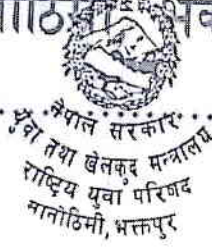 नेपाल सरकार
युवा तथा खेलकुद मन्त्रालय
राष्ट्रिय युवा परिषद
मानोठिमी, भक्तपुर